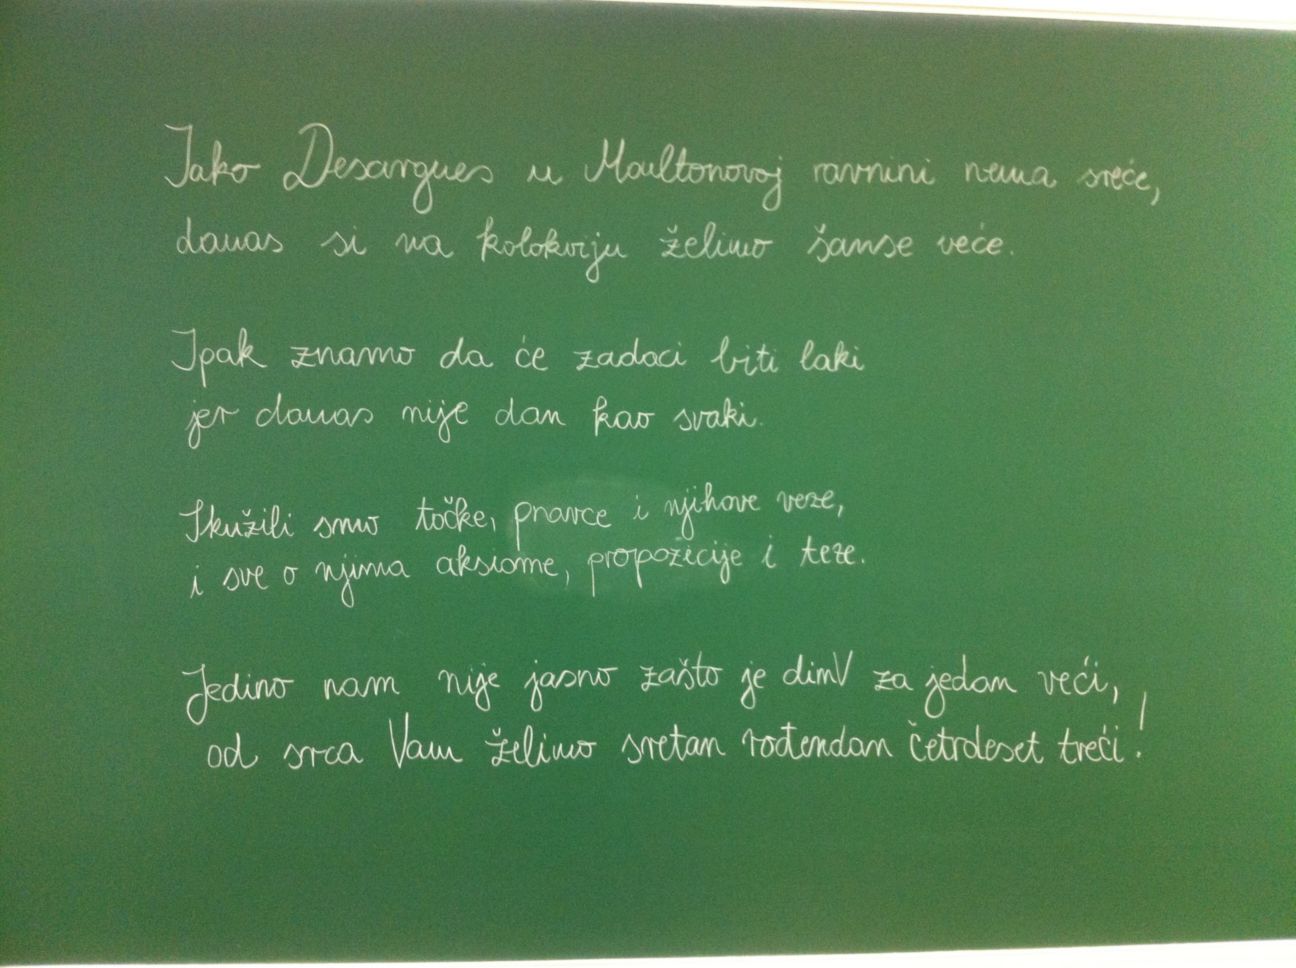 Iako Desargues u Moultonovoj ravnini nema sreće,
danas si na kolokviju želimo šanse veće.
Ipak znamo da će zadaci biti laki
jer danas nije dan kao svaki.
Skužili smo točke, pravce i njihove veze,
i sve o njima aksiome, propozicije i teze.
Jedino nam nije jasno zašto je dimV za jedan veći,
od srca Vam želimo sretan rođendan četrdeset treći!